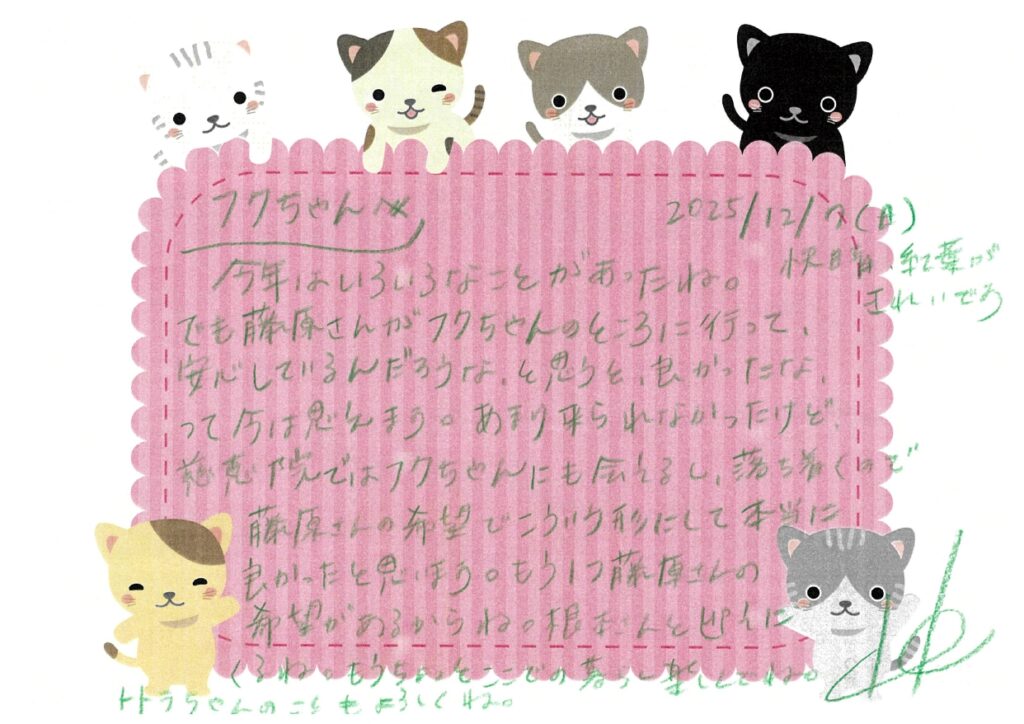 フクちゃんへ
2025/12/7(日)
快晴 紅葉が
きれいです
今年はいろいろなことがあったね。
でも藤原さんがフクちゃんのところに行って、
安心しているんだろうな、と思うと、良かったな、
って今は思えます。あまり来られなかったけど、
慈恵院ではフクちゃんにも会えるし、落ち着くので
藤原さんの希望でこういう形にして本当に
良かったと思います。もう1つ藤原さんの
希望があるからね。根本さんと迎えに
くるね。もうちょっとここでの暮らし楽しんでね。
トトラちゃんのこともよろしくね。